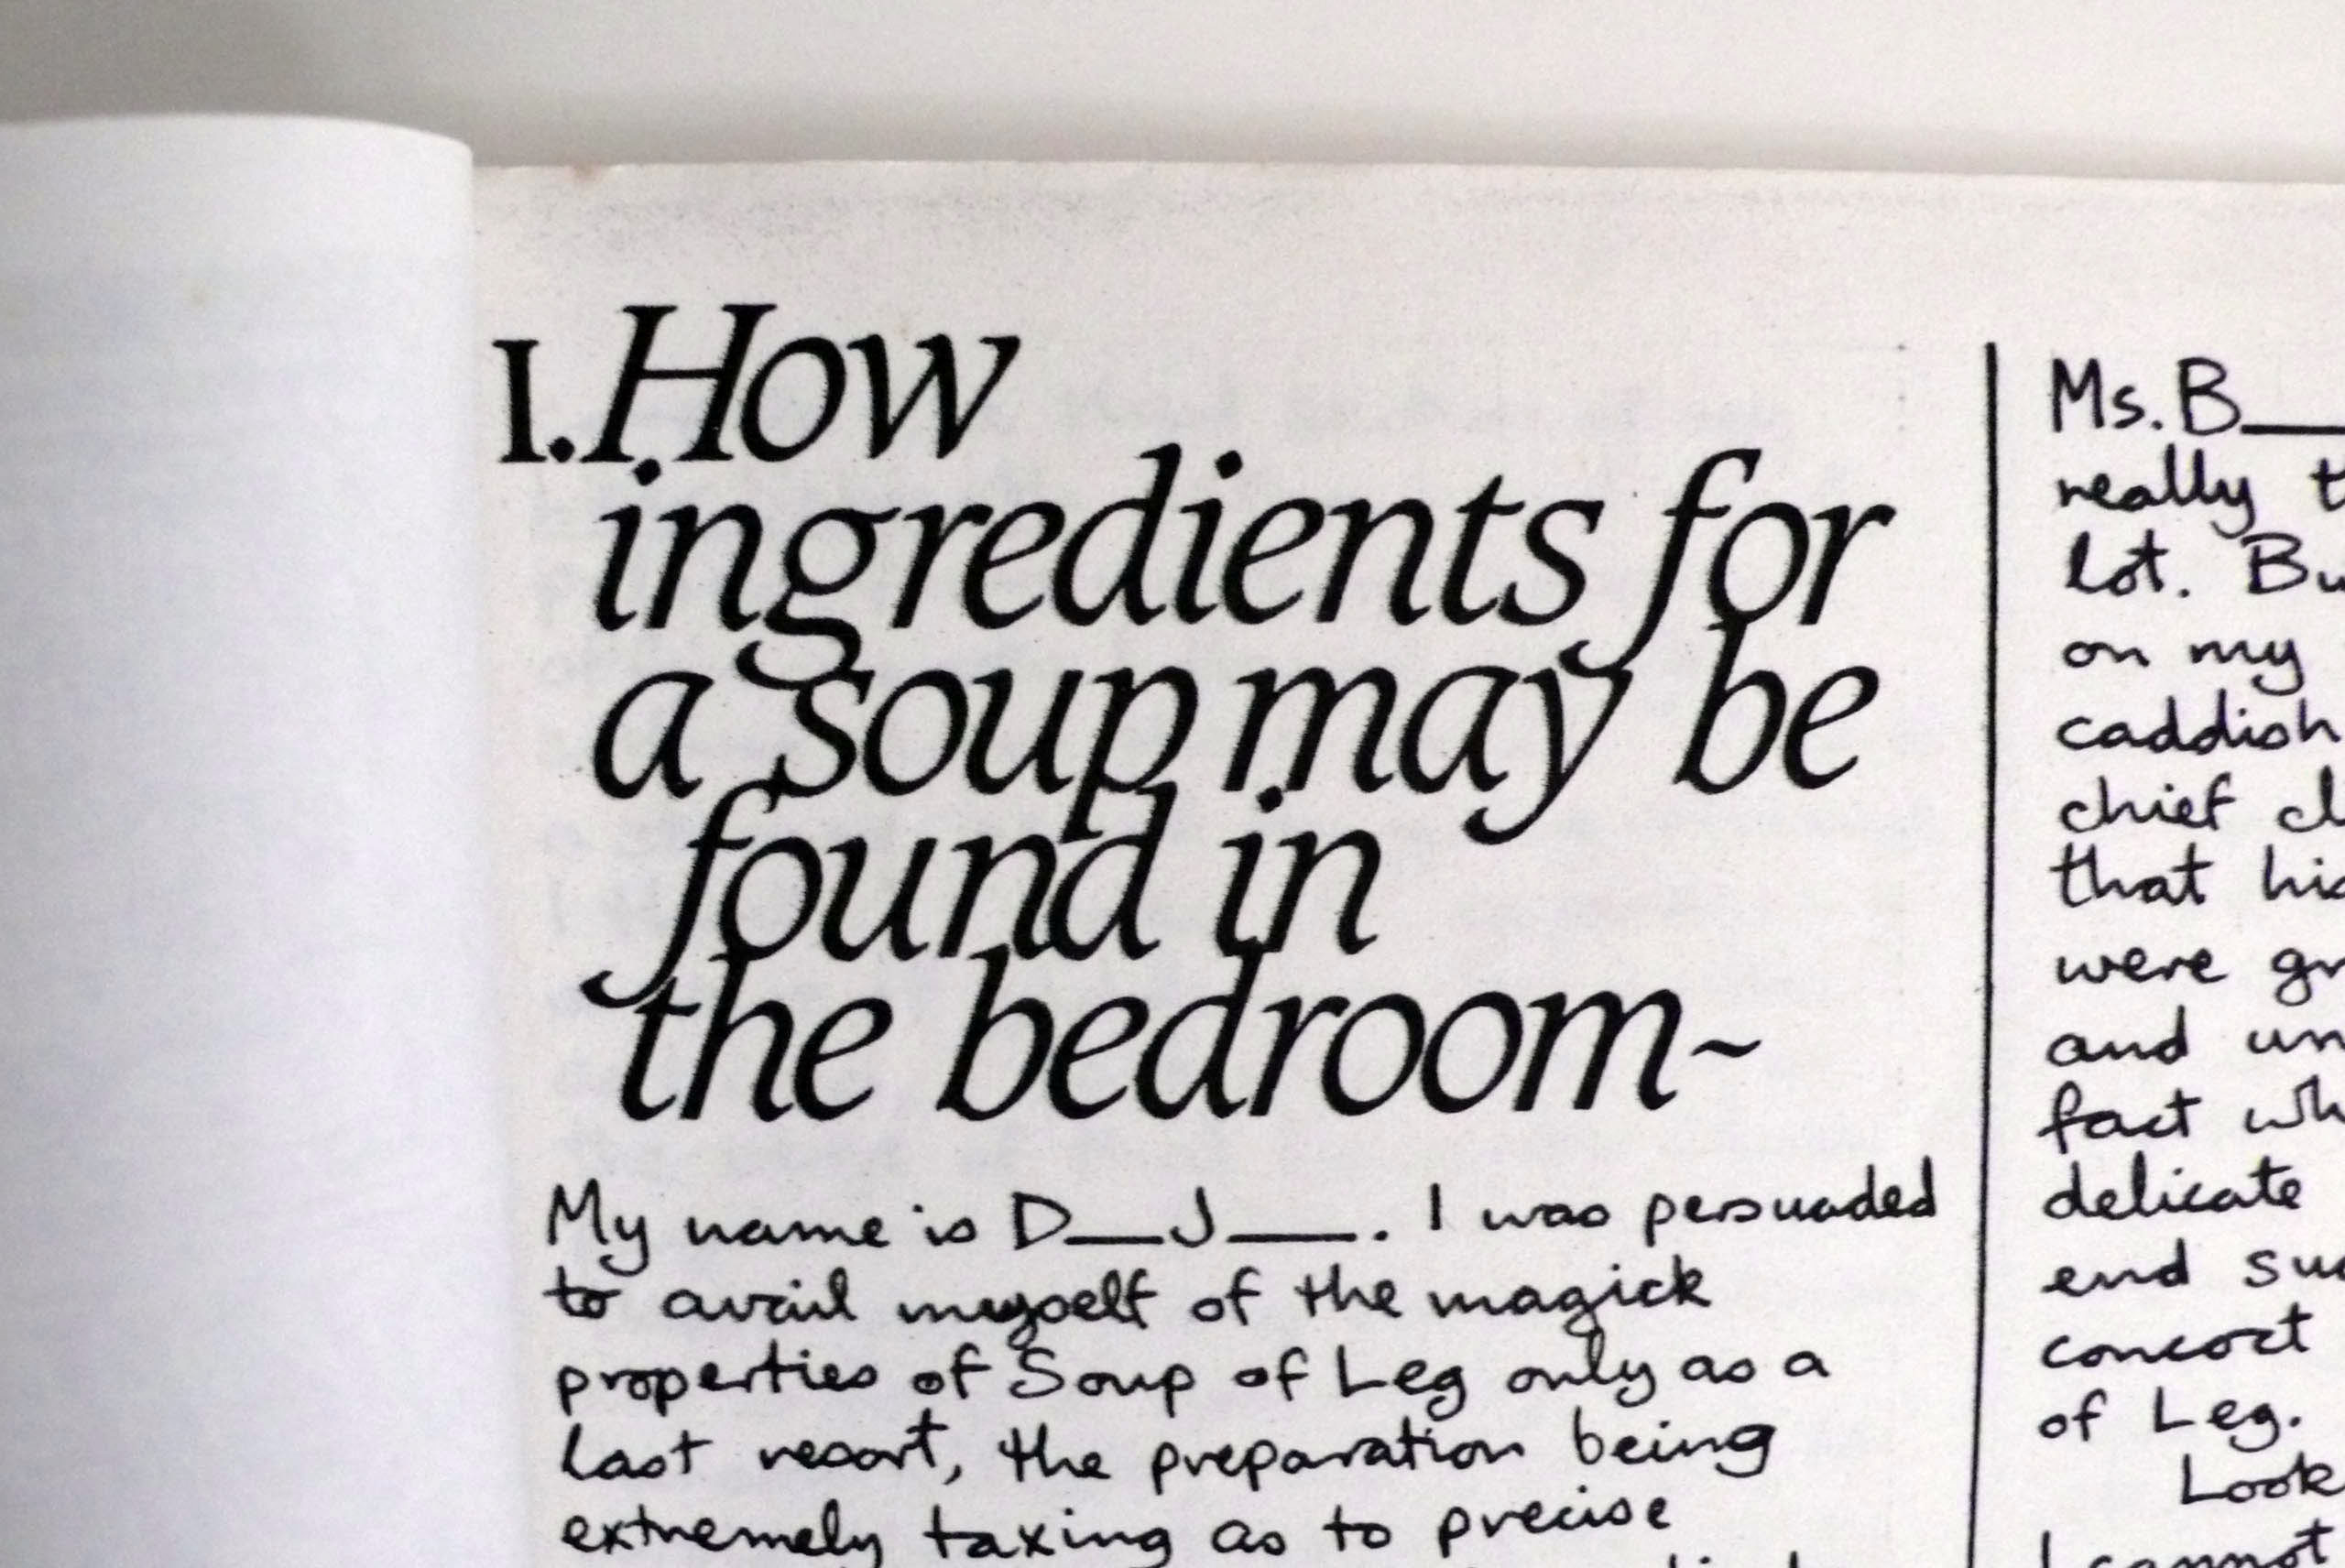 I. How
ingredients for
a soup may be
found in
the bedroom~
My name is D__J___. I was persuaded
to avail myself of the magick
properties of Soup of Leg only as a
last resort, the preparation being
extremely taxing as to precise
Ms. B___
really
lot.
on my
caddish
chief
that
were
and
fact
delicate
end
concoct
of Leg.
Look
I cannot